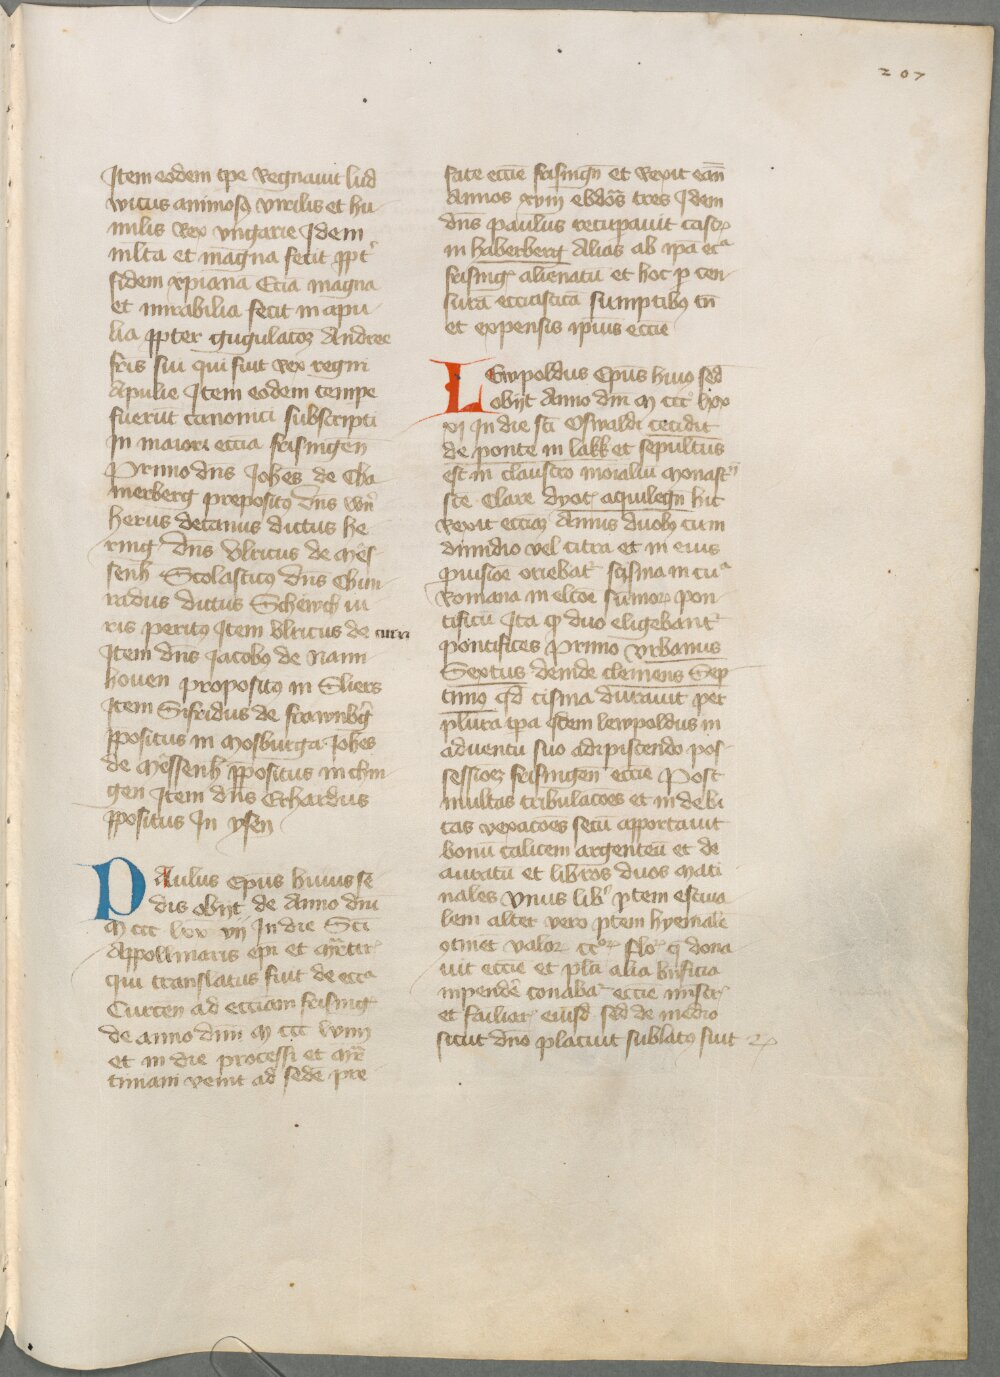 207
Item eodem tpe Regnauit lud
wicus animosꝯ virilis et hu
milis Rex vngarie Idem
mlta et magna fecit ꝓpt᷑
fidem xpianā Eciā magna
et mirabilia fecit in apu
lia ꝓpter gugulatoꝫ Andree
fr̄is sui qui fuit Rex regni
Apulie Item eodem tempe
fuerūt canonici subscripti
In maiori ecc̄ia frisingen̄
Primo dn̄s Joh̄es de Cha
merberg prepositꝯ dn̄s wn̄
herus decanus dictus he
ring dn̄s vlricus de Mēs-
senh Scolasticꝯ dn̄s Chun-
radus dictus Schench iu
ris peritꝯ Item vlricus de curia
Item dn̄s Jacobꝯ de Nann
houen propositꝯ in Sliers
Item Sifridus de frawnbg̃
ꝓpositus in Mosburga Joh̄es
de Mēssenh̄ ꝓpositus in chin-
gen Item dn̄s Echardus
ꝓpositus In ysen
PAulus Ep̄us huius se
dis obijt de Anno dn̄i
M ccc lxx vij In die Sc̄i
Appollinaris ep̄i et mr̄tir᷑
qui translatus fuit de ecc̄a
Curcen̄ ad ecc̄iam frising᷑
de anno dn̄i M ccc lviiij
et in die processi et mr̄
tiniani venit ad sedē pre
fate ecc̄ie frisingn̄ et Rexit eān
Annos xviij ebdoās tres Idem
dn̄s paulus recupauit castꝝ
in haberberg Alias ab ip̄a ecᵃ
frising᷑ alienatū et hoc ꝑ cen-
surā ecc̄iasticā sumptibꝯ tn̄
et expensis ip̄ius ecc̄ie
LEwpoldus Ep̄us huiꝯ sed̄
obijt Anno dn̄i M ccc lxxx
xj In die sc̄i Oswaldi cecidit
de ponte in lakk et sepultus
est in claustro moīaliū Monast᷑ij
sc̄e Clare dyoc᷑ aquilegn̄ hic
Rexit ecc̄iaꝫ Annis duobꝯ cum
dimidio vel citra et in eius
ꝓuisiōe oriebat᷑ scisma in cuᵃ
Romana in elcōe sūmoꝝ pon
tificū Ita qꝫ duo eligebant᷑
pontifices Primo vrbanus
Sextus deinde clemens Sep
timꝯ qd̄ cisma durauit per
plura tpa Item lewpoldus in
aduentu suo adipiscendo pos-
sessioēꝫ frisingen̄ ecc̄ie Post
multas tribulacōes et indebi
tas vexacōes secū apportauit
bonū calicem argenteū et de
auratū et libros duos Mati
nales vnus lib᷑ ꝑtem estiua
lem alter vero ꝑtem hyemalē
otinet valoꝝ ccᵒꝝ floꝝ q̄ dona
uit ecc̄ie et pl̄a alia bn̄ficia
inpendē conabaᵗ ecc̄ie mist᷑
et failiar᷑ eiusd̄ sed de medio
sicut dn̄o placuit sublatꝯ fuit